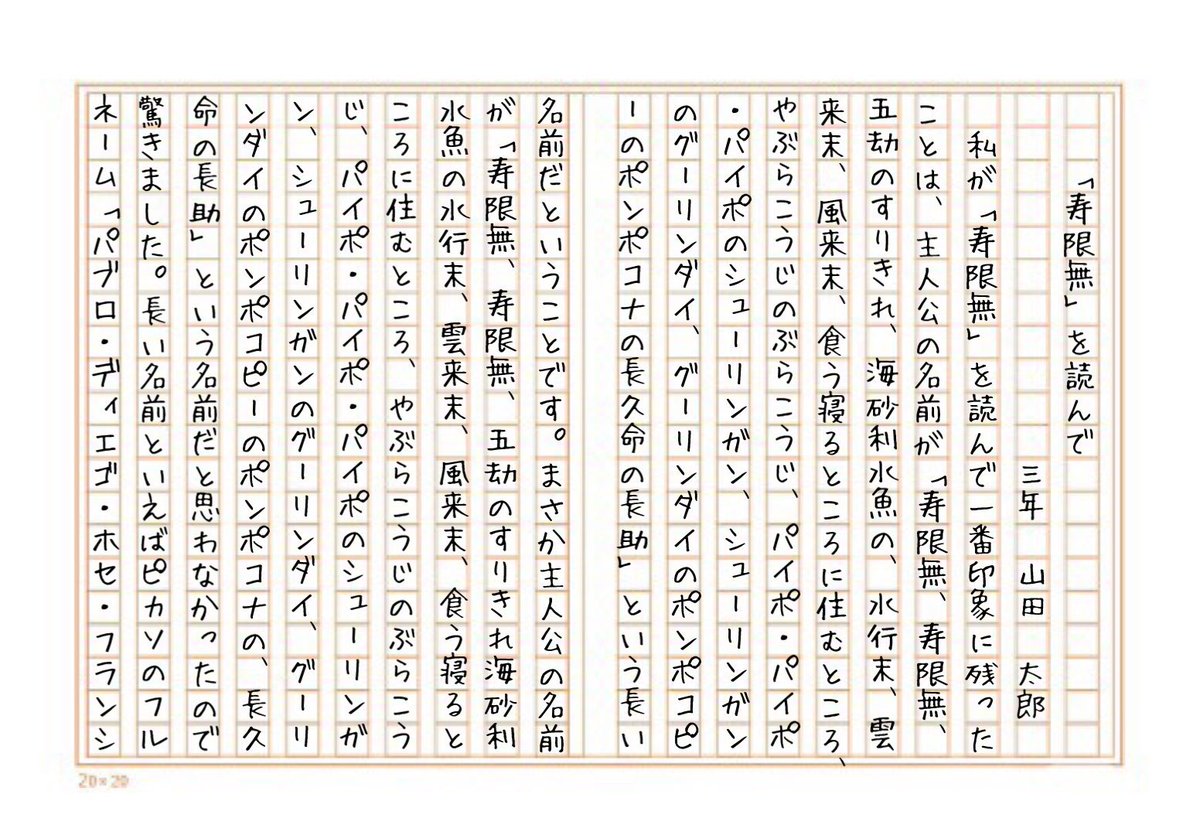 「寿限無」を読んで
三年　山田　太郎
私が「寿限無」を読んで一番印象に残った
ことは、主人公の名前が「寿限無、寿限無、
五劫のすりきれ、海砂利水魚の、水行末、雲
来末、風来末、食う寝るところに住むところ、
やぶらこうじのぶらこうじ、パイポ・パイポ
・パイポのシューリンガン、シューリンガン
のグーリンダイ、グーリンダイのポンポコピ
ーのポンポコナの長久命の長助」という長い
名前だということです。まさか主人公の名前
が「寿限無、寿限無、五劫のすりきれ海砂利
水魚の水行末、雲来末、風来末、食う寝ると
ころに住むところ、やぶらこうじのぶらこう
じ、パイポ・パイポ・パイポのシューリンガ
ン、シューリンガンのグーリンダイ、グーリ
ンダイのポンポコピーのポンポコナの、長久
命の長助」という名前だと思わなかったので
驚きました。長い名前といえばピカソのフル
ネーム「パブロ・ディエゴ・ホセ・フランシ
20×20